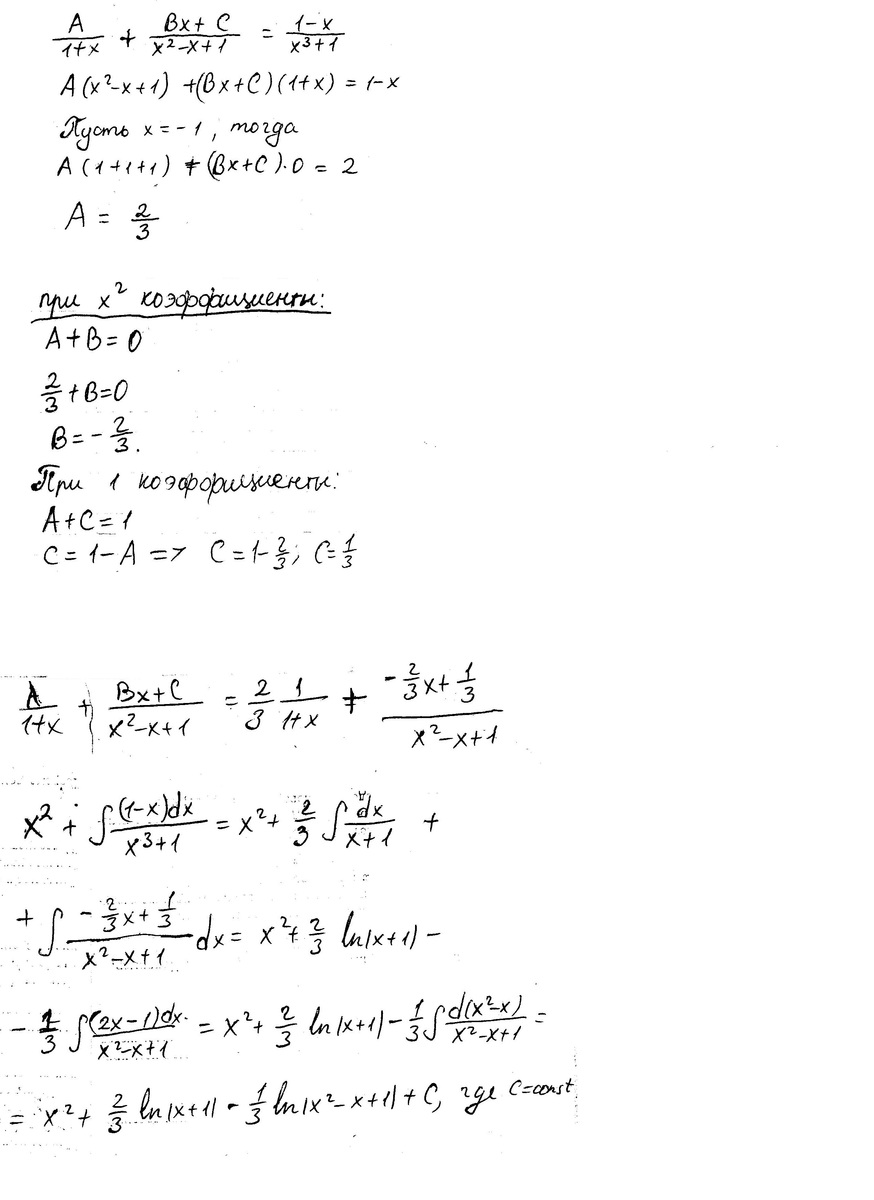 A/(1+x) + (Bx+C)/(x²-x+1) = (1-x)/(x³+1)
A(x²-x+1) +(Bx+C)(1+x) = 1-x
Пусть x=-1, тогда
A(1+1+1) + (Bx+C)·0 = 2
A = 2/3
при x² коэффициенты:
A+B=0
2/3+B=0
B=-2/3.
При 1 коэффициенты:
A+C=1
C=1-A => C=1-2/3; C=1/3
A/(1+x) + (Bx+C)/(x²-x+1) = 2/3 1/(1+x) + (-2/3x+1/3)/(x²-x+1)
x² + ∫(1-x)dx/(x³+1) = x²+ 2/3 ∫dx/(x+1) +
+ ∫(-2/3x+1/3)/(x²-x+1) dx = x²+ 2/3 ln|x+1| -
- 1/3 ∫(2x-1)dx/(x²-x+1) = x²+ 2/3 ln|x+1| - 1/3 ∫d(x²-x)/(x²-x+1) =
= x²+ 2/3 ln|x+1| - 1/3 ln|x²-x+1| + C, где C=const